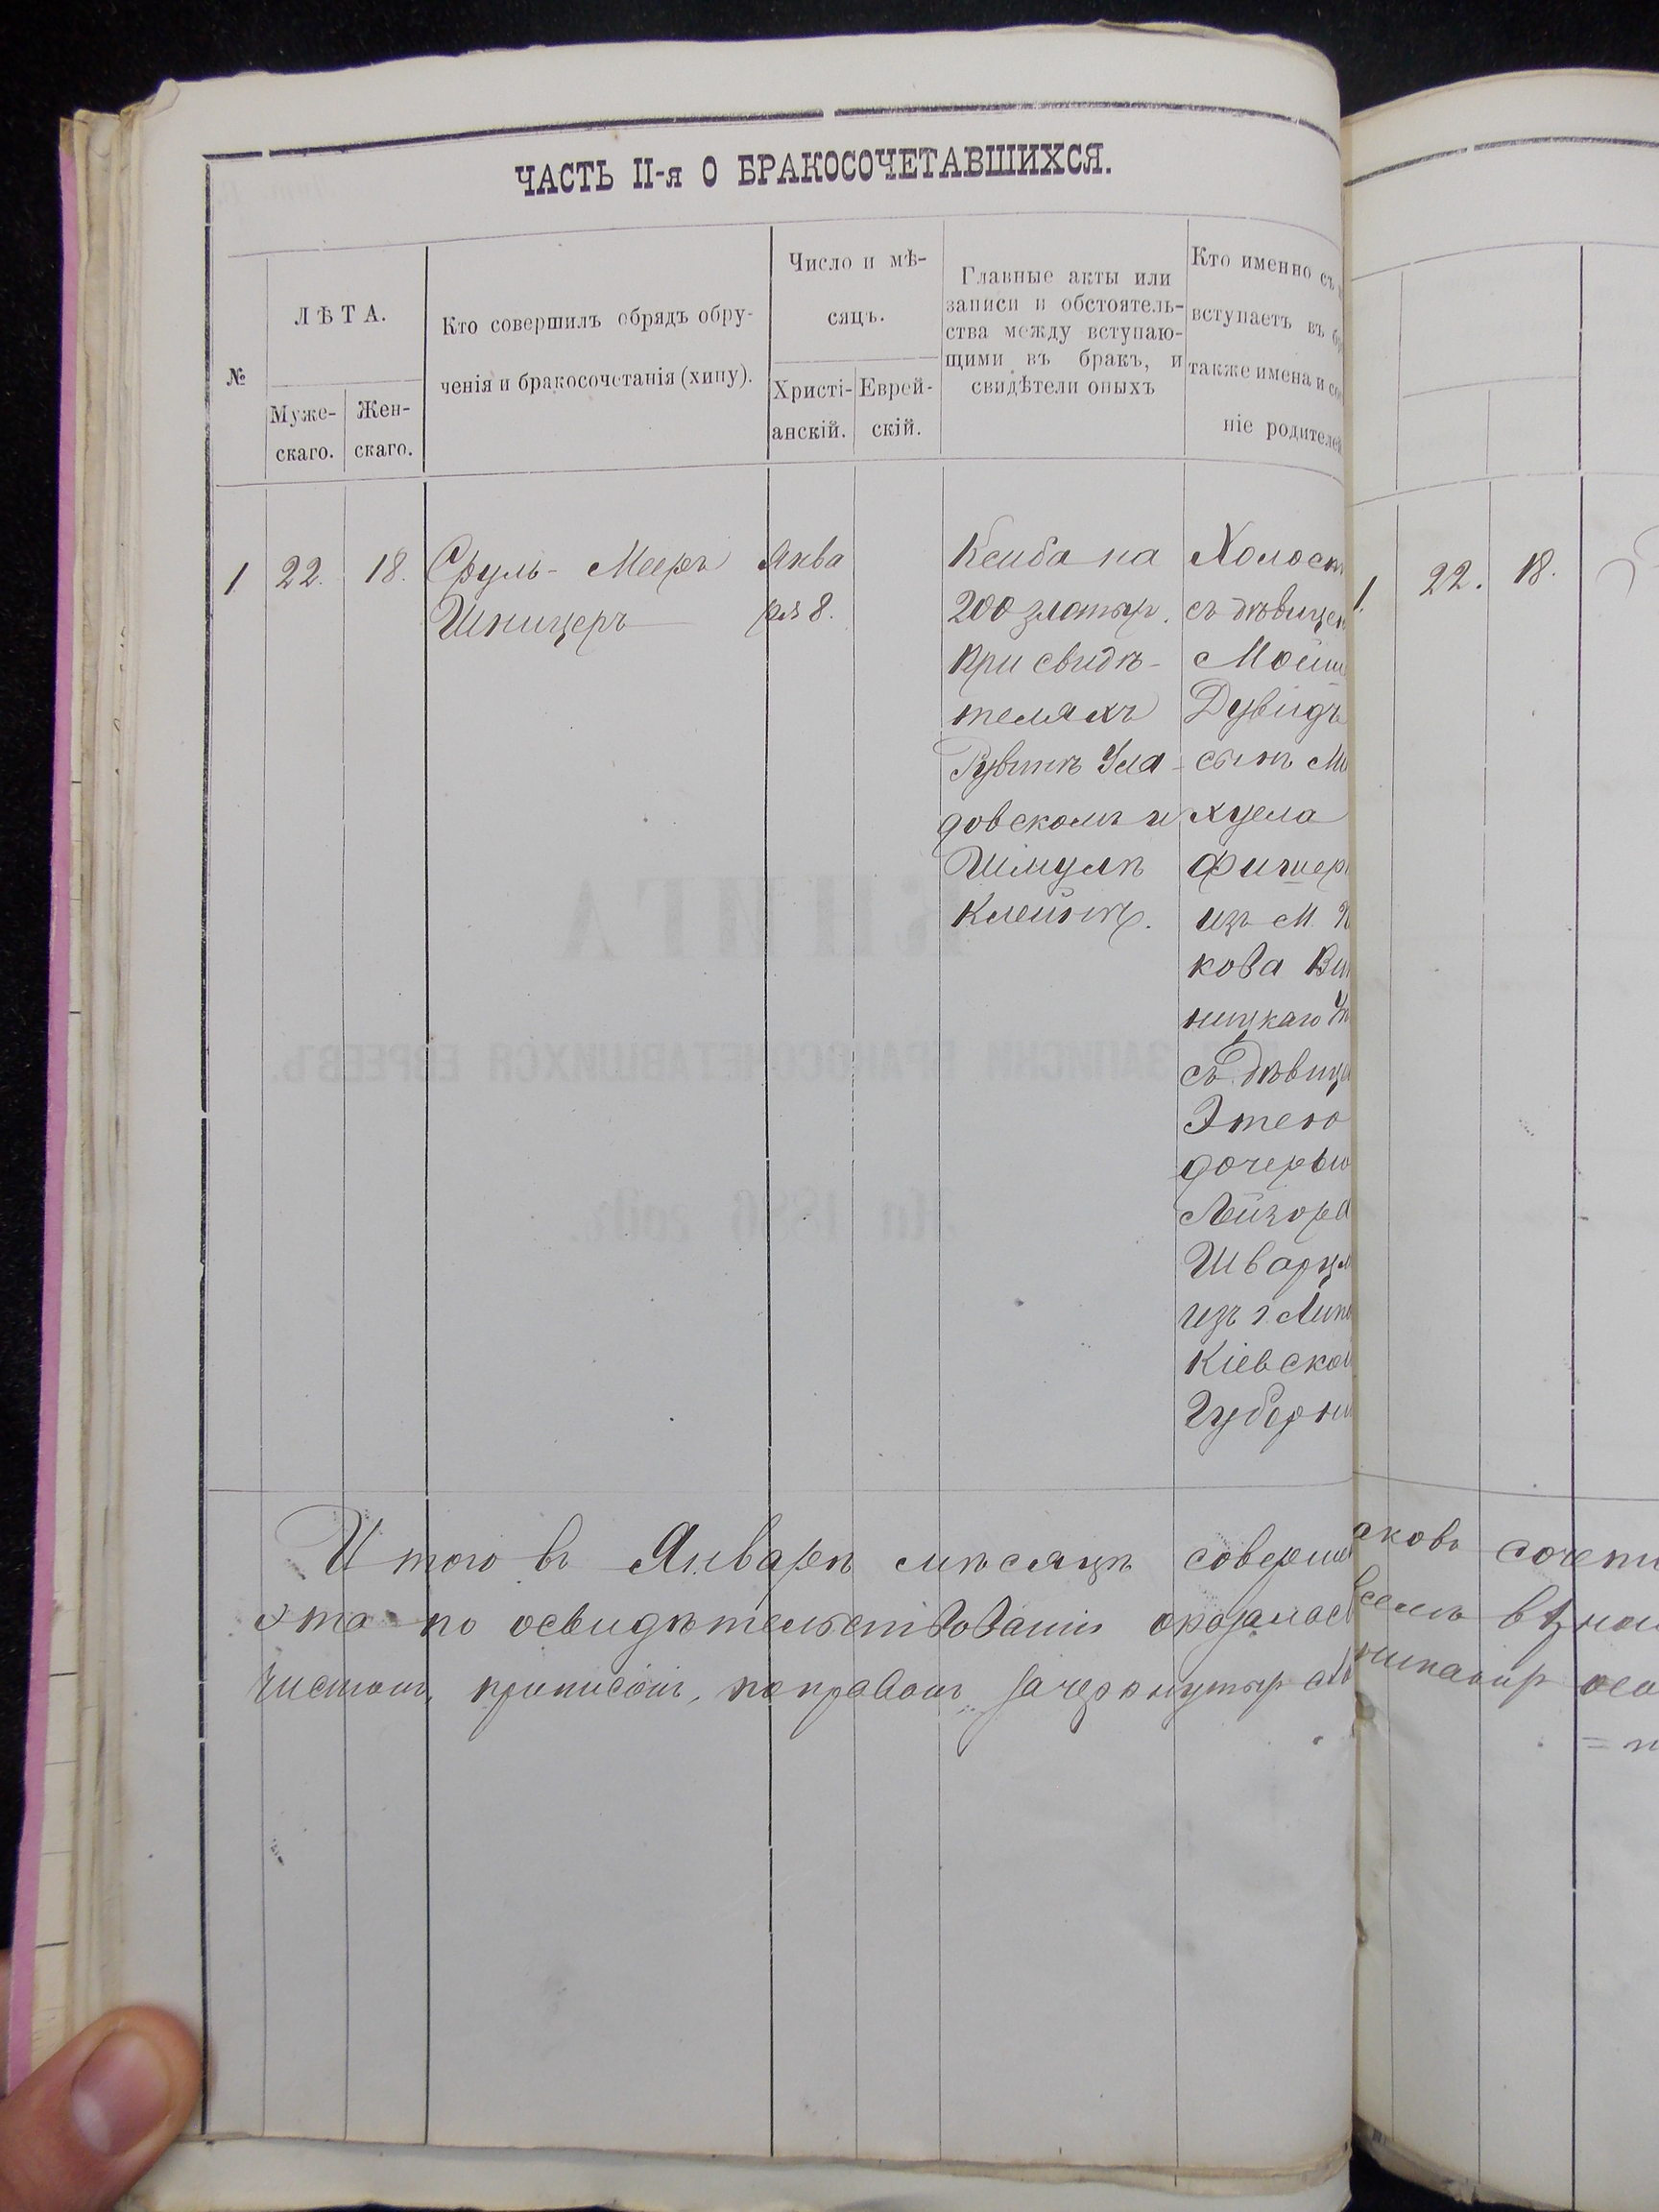 ЧАСТЬ II-я О БРАКОСОЧЕТАВШИХСЯ.
№
ЛѢТА.
Муже-
скаго.
Жен-
скаго.
Кто совершилъ обрядъ обру-
ченія и бракосочетанія (хипу).
Число и мѣ-
сяцъ.
Христі-
анскій.
Еврей-
скій.
Главные акты или
записи и обстоятель-
ства между вступаю-
щими въ бракъ, и
свидѣтели оныхъ
Кто именно съ
вступаетъ въ
также имена и
ніе родителей
1
22.
18.
Сруль-Мееръ
Шницеръ
Янва
ря 8.
Ксиба на
200 златых.
при свидѣ-
теляхъ
Рувинѣ Ула-
довскомъ и
Шмулѣ
Клейнѣ.
Холост
съ дѣвицею
Мойш
Дувидъ
сынъ М
хцела
Фишер
изъ м.
кова Ви
ницкаго
съ дѣвице
Этею
дочерью
Лейзора
Шварцм
изъ г. Лип
Кіевской
Губерни
Итого въ Январѣ мѣсяцѣ соверше
эта по освидѣтельствованіи оказалас
чистою, приписокъ, поправокъ, зачеркнутых
1.
22.
18.
аковъ сочет
КНИГА
ЗАПИСКИ БРАКОСОЧЕТАВШИХСЯ ЕВРЕЕВЪ.
На 1886 годъ.